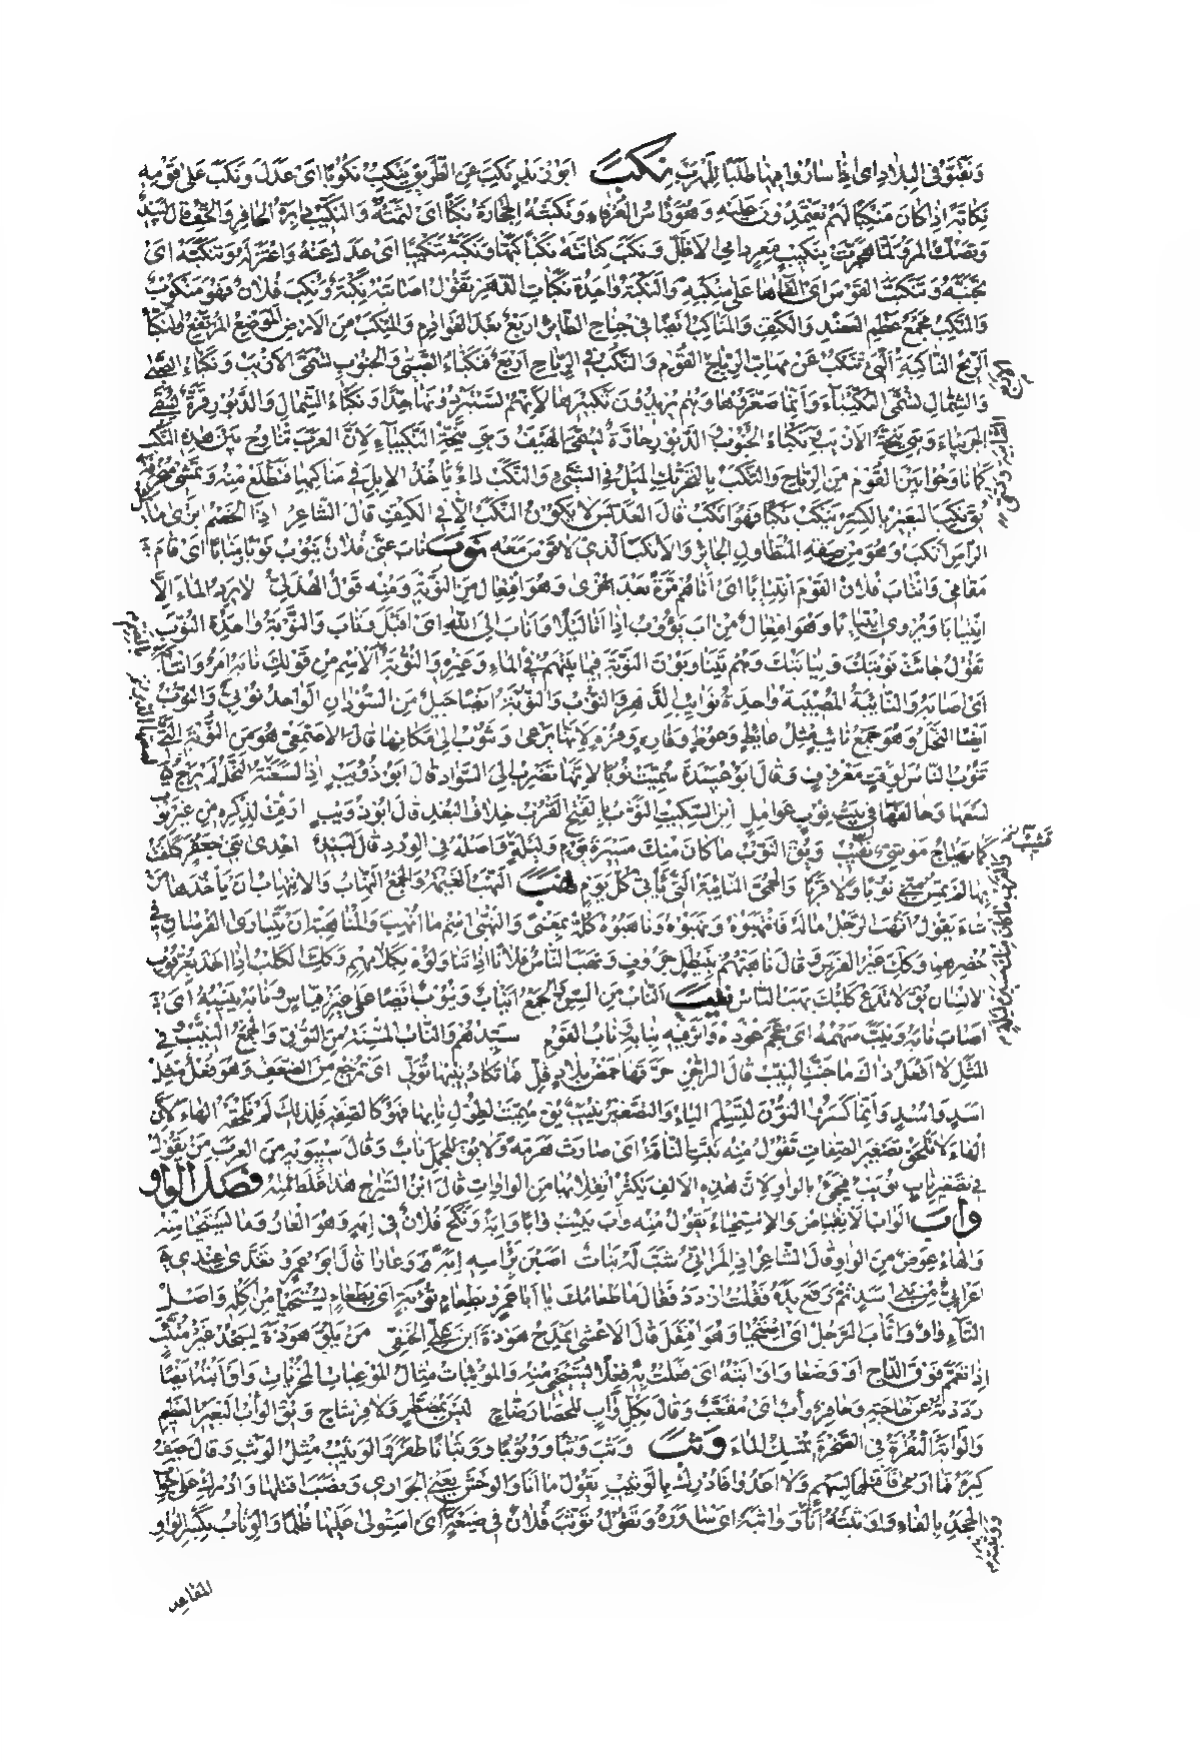 وَنَقَّبُوْ فِي الْبِلَادِ اى سارُوا فِيها طَلَبًا لِلْهَرَبِ نكب ابو زيدٍ نَكَبَ عَنِ الطَّرِيْقِ يَنْكُبُ نُكُوْبًا اىْ عَدَلَ وَنَكَبَ عَلى قَوْمِهِ
نِكَابَةً اِذا كَانَ مَنْكِبًا لَهُمْ يَعْتَمِدُوْنَ عَلَيْهِ وَهُوَ رَأسُ الْعُرَفَاءِ وَنَكَبَتْهُ الْحِجَارَةُ نَكْبًا اىْ لَثَمَتْهُ وَالنَّكِيْبُ دَائِرَةُ الْحَافِرِ وَالْخُفِّ قَالَ لَبِيْدٌ
وَتَصُكُّ الْمَرْوَ لَمَّا هَجَّرَتْ بِنَكِيْبٍ مَعِرٍ دَامِي الْاَظَلّ وَنَكَبَ كِنَانَتَهُ نَكْبًا كَبَّها وَنَكَّبَهُ تَنْكِيْبًا اىْ عَدَلَ عَنْهُ وَاعْتَزَلَهُ وَتَنَكَّبَهُ اىْ
تَجَنَّبَهُ وَتَنَكَّبَ الْقَوْسَ اىْ القاها عَلى مَنْكِبِهِ وَالنَّكْبَةُ وَاحِدَةُ نَكَبَاتِ الدَّهْرِ تَقُوْلُ اصَابَتْهُ نَكْبَةٌ وَنُكِبَ فُلَانٌ فَهُوَ مَنْكُوْبٌ
وَالْمَنْكِبُ مَجْمَعُ عَظْمِ الْعَضُدِ وَالْكَتِفِ وَالْمَنَاكِبُ ايْضًا فِي جَنَاحِ الطّائِرِ اَرْبَعٌ بَعْدَ الْقَوَادِمِ وَالْمَنْكِبُ مِنَ الْاَرْضِ الْمَوْضِعُ الْمُرْتَفِعُ وَالنَّكْبَاءُ
الرِّيْحُ النَّاكِبَةُ الَّتِي تَنْكُبُ عَنْ مَهَابِّ الرِّيَاحِ الْقُوَّمِ وَالنُّكْبُ فِي الرِّيَاحِ اَرْبَعٌ فَنَكْبَاءُ الصَّبَا وَالْجَنُوْبِ تُسَمَّى الْاَزْيَبَ وَنَكْبَاءُ الصَّبَا
وَالشَّمَالِ تُسَمَّى النُّكَيْبَاءَ وَاِنَّمَا صَغَّرُوْهَا وَهُمْ يُرِيْدُوْنَ تَكْبِيْرَهَا لِاَنَّهُمْ يَسْتَبْرِدُوْنَهَا جِدًّا وَنَكْبَاءُ الشَّمَالِ وَالدَّبُوْرِ قَرَّةٌ تُسَمَّى
الْجِرْبِيَاءَ وَهِيَ نَيِّحَةُ الْاَزْيَبِ وَنَكْبَاءُ الْجَنُوْبِ وَالدَّبُوْرِ حَارَّةٌ تُسَمَّى الْهَيْفَ وَهِيَ نَيِّحَةُ النُّكَيْبَاءِ لِاَنَّ الْعَرَبَ تُنَاوِحُ بَيْنَ هٰذِهِ النُّكْبِ
كَمَا نَاوَحُوا بَيْنَ الْقُوَّمِ مِنَ الرِّيَاحِ وَالنَّكَبُ بِالتَّحْرِيْكِ الْمَيْلُ فِي الشَّىْءِ وَالنَّكَبُ دَاءٌ يَاْخُذُ الْاِبِلَ فِي مَنَاكِبِهَا فَتَظْلَعُ مِنْهُ وَتَمْشِي مُنْحَرِفَةً
يُقَالُ نَكِبَ الْبَعِيْرُ بِالْكَسْرِ يَنْكَبُ نَكَبًا فَهُوَ اَنْكَبُ قَالَ الْعَدَبَّسُ لَا يَكُوْنُ النَّكَبُ اِلَّا فِي الْكَتِفِ قَالَ الشَّاعِرُ اِذَا الْخَصْمُ اَبْزَى مَائِلُ
الرَّاْسِ اَنْكَبُ وَهُوَ مِنْ صِفَةِ الْمُتَطَاوِلِ الْجَائِرِ وَالْاَنْكَبُ الَّذِيْ لَا قَوْسَ مَعَهُ نوب نَابَ عَنِّي فُلَانٌ يَنُوْبُ نَوْبًا وَمَنَابًا اىْ قَامَ
مَقَامِي وَانْتَابَ فُلَانٌ الْقَوْمَ انْتِيَابًا اىْ اَتَاهُمْ مَرَّةً بَعْدَ اُخْرَى وَهُوَ افْتِعَالٌ مِنَ النَّوْبَةِ وَمِنْهُ قَوْلُ الْهُذَلِيِّ لَا يَرِدُ الْمَاءَ اِلَّا
انْتِيَابَا وَيُرْوَى ائْتِيَابًا وَهُوَ افْتِعَالٌ مِنْ آبَ يَؤُوْبُ اِذَا اَتَا لَيْلًا وَاَنَابَ اِلَى اللّٰهِ اىْ اَقْبَلَ وَتَابَ وَالنَّوْبَةُ وَاحِدَةُ النُّوَبِ
تَقُوْلُ جَاءَتْ نَوْبَتُكَ وَنِيَابَتُكَ وَهُمْ يَتَنَاوَبُوْنَ النَّوْبَةَ فِيْمَا بَيْنَهُمْ فِي الْمَاءِ وَغَيْرِهِ وَالنُّوْبَةُ الْاِسْمُ مِنْ قَوْلِكَ نَابَهُ اَمْرٌ وَانْتَابَهُ
اىْ اَصَابَهُ وَالنَّائِبَةُ الْمُصِيْبَةُ وَاحِدَةُ نَوَائِبِ الدَّهْرِ وَالنُّوْبُ وَالنُّوْبَةُ اَيْضًا جِيْلٌ مِنَ السُّوْدَانِ الْوَاحِدُ نُوْبِيٌّ وَالنُّوْبُ
اَيْضًا النَّحْلُ وَهُوَ جَمْعُ نَائِبٍ مِثْلُ عَائِطٍ وَعُوْطٍ وَفَارِهٍ وَفُرْهٍ لِاَنَّهَا تَرْعَى وَتَنُوْبُ اِلَى مَكَانِهَا قَالَ الْاَصْمَعِيُّ هُوَ مِنَ النُّوْبَةِ الَّتِي
تَنُوْبُ النَّاسَ لِوَقْتٍ مَعْرُوْفٍ وَقَالَ اَبُوْ عُبَيْدَةَ سُمِّيَتْ نُوْبًا لِاَنَّهَا تَضْرِبُ اِلَى السَّوَادِ قَالَ اَبُوْ ذُوَيْبٍ اِذَا لَسَعَتْهُ النَّحْلُ لَمْ يَرْجُ
لَسْعَهَا وَحَالَفَهَا فِي بَيْتِ نُوْبٍ عَوَامِلِ ابْنُ السِّكِّيْتِ النَّوْبُ بِالْفَتْحِ الْقُرْبُ خِلَافُ الْبُعْدِ قَالَ اَبُوْ ذُوَيْبٍ اَرِقْتُ لِذِكْرِهِ مِنْ غَيْرِ نَوْبٍ
كَمَا يَهْتَاجُ مَوْشِيٌّ نَقِيْبُ وَيُقَالُ النَّوْبُ مَا كَانَ مِنْكَ مَسِيْرَةَ يَوْمٍ وَلَيْلَةٍ وَاَصْلُهُ فِي الْوِرْدِ قَالَ لَبِيْدٌ اِحْدَى بَنِي جَعْفَرٍ كَلِفْتُ
بِهَا لَمْ تُمْسِ نَوْبًا وَلَا قَرَبًا وَالْحُمَّى النَّائِبَةُ الَّتِي تَاْتِي كُلَّ يَوْمٍ نهب النَّهْبُ الْغَنِيْمَةُ وَالْجَمْعُ النِّهَابُ وَالْاِنْتِهَابُ اَنْ يَاْخُذَهَا مَنْ
شَاءَ تَقُوْلُ اَنْهَبَ الرَّجُلُ مَالَهُ فَانْتَهَبُوْهُ وَنَهَبُوْهُ وَنَاهَبُوْهُ كُلُّهُ بِمَعْنًى وَالنُّهْبَى اسْمُ مَا اُنْهِبَ وَالْمُنَاهَبَةُ اَنْ يَتَبَارَى الْفَرَسَانِ فِي
حُضْرِهِمَا وَكَذٰلِكَ غَيْرُ الْفَرَسِ وَقَالَ نَاهَبْتُهُمْ بِنَيْطَلٍ جَرُوْفٍ وَنَهَبَ النَّاسُ فُلَانًا اِذَا تَنَاوَلُوْهُ بِكَلَامِهِمْ وَكَذٰلِكَ الْكَلْبُ اِذَا اَخَذَ بِعُرْقُوْبِ
الْاِنْسَانِ يُقَالُ لَا تَدَعْ كَلْبَكَ يَنْهَبِ النَّاسَ نيب النَّابُ مِنَ السِّنِّ وَالْجَمْعُ اَنْيَابٌ وَنُيُوْبٌ اَيْضًا عَلَى غَيْرِ قِيَاسٍ وَنَابَهُ يَنِيْبُهُ اَيْ
اَصَابَ نَابَهُ وَنَيَّبَ سَهْمَهُ اىْ عَجَمَ عُوْدَهُ وَاَثَّرَ فِيْهِ بِنَابِهِ وَنَابُ الْقَوْمِ سَيِّدُهُمْ وَالنَّابُ الْمُسِنَّةُ مِنَ النُّوْقِ وَالْجَمْعُ النِّيْبُ وَفِي
الْمَثَلِ لَا اَفْعَلُ ذَاكَ مَا حَنَّتِ النِّيْبُ قَالَ الرَّاجِزُ حَرَّقَهَا حَمْضُ بِلَادٍ فِلِّ فَمَا تَكَادُ نِيْبُهَا تُوَلِّي اىْ تَرْجِعُ مِنَ الضَّعْفِ وَهُوَ فُعْلٌ مِثْلُ
اَسَدٍ وَاُسْدٍ وَاِنَّمَا كَسَرُوا النُّوْنَ لِتَسْلَمَ الْيَاءُ وَالتَّصْغِيْرُ نُيَيْبٌ يُقَالُ سُمِّيَتْ لِطُوْلِ نَابِهَا فَهُوَ كَالصِّفَةِ فَلِذٰلِكَ لَمْ تَلْحَقْهُ الْهَاءُ لِاَنَّ
الْهَاءَ لَا تَلْحَقُ تَصْغِيْرَ الصِّفَاتِ تَقُوْلُ مِنْهُ نَيَّبَتِ النَّاقَةُ اىْ صَارَتْ هَرِمَةً وَلَا يُقَالُ لِلْجَمَلِ نَابٌ وَقَالَ سِيْبَوَيْهِ مِنَ الْعَرَبِ مَنْ يَقُوْلُ
فِي تَصْغِيْرِ نَابٍ نُوَيْبٌ فَيَجِيْءُ بِالْوَاوِ لِاَنَّ هٰذِهِ الْاَلِفَ يَكْثُرُ انْقِلَابُهَا مِنَ الْوَاوَاتِ قَالَ ابْنُ السَّرَّاجِ هٰذَا غَلَطٌ مِنْهُ فصل الواو
وأب الْوَأْبُ الْاِنْقِبَاضُ وَالْاِسْتِحْيَاءُ تَقُوْلُ مِنْهُ وَأَبَ يَئِبُ وَأْبًا وَاِبَةً وَنَكَحَ فُلَانٌ فِي اِبَةٍ وَهُوَ الْعَارُ وَمَا يُسْتَحْيَا مِنْهُ
وَالْهَاءُ عِوَضٌ مِنَ الْوَاوِ قَالَ الشَّاعِرُ اِذَا الْمَرَئِيُّ شَبَّ لَهُ بَنَاتٌ عَصَبْنَ بِرَاْسِهِ اِبَةً وَعَارَا قَالَ اَبُوْ عَمْرٍو تَغَدَّى عِنْدِي
اَعْرَابِيٌّ مِنْ بَنِي اَسَدٍ ثُمَّ رَفَعَ يَدَهُ فَقُلْتُ ازْدَدْ فَقَالَ مَا طَعَامُكَ يَا اَبَا عَمْرٍو بِطَعَامِ تُؤَبَةٍ اىْ بِطَعَامٍ يُسْتَحْيَا مِنْ اَكْلِهِ وَاَصْلُ
التَّاءِ وَاوٌ وَاتَّأَبَ الرَّجُلُ اىْ اسْتَحْيَا وَهُوَ افْتَعَلَ قَالَ الْاَعْشَى يَمْدَحُ هَوْذَةَ ابْنَ عَلِيٍّ الْحَنَفِيَّ مَنْ يَلْقَ هَوْذَةَ يَسْجُدْ غَيْرَ مُتَّئِبٍ
اِذَا تَعَمَّمَ فَوْقَ التَّاجِ اَوْ وَضَعَا وَاَوْأَبْتُهُ اىْ فَعَلْتُ بِهِ فِعْلًا يُسْتَحْيَى مِنْهُ وَالْمُوْئِبَاتُ مِثَالُ الْمُوْعِبَاتِ الْمُخْزِيَاتُ وَاَوْأَبْتُهُ اَيْضًا
رَدَدْتُهُ عَنْ حَاجَتِهِ وَحَافِرٌ وَأْبٌ اىْ مُقَعَّبٌ وَقَالَ بِكُلِّ وَأْبٍ لِلْحَصَا رَضَّاحِ لَيْسَ بِمُصْطَرٍّ وَلَا فِرْشَاحِ وَيُقَالُ الْوَأْبُ الْبَعِيْرُ الْعَظِيْمُ
وَالْوَأْبَةُ النُّقْرَةُ فِي الصَّخْرَةِ تُمْسِكُ الْمَاءَ وثب وَثَبَ وَثْبًا وَوُثُوْبًا وَوَثَبَانًا طَفَرَ وَالْوَثِيْبُ مِثْلُ الْوَثْبِ وَقَالَ يَصِفُ
كِبَرَهُ فَمَا اَرْمِي فَاَقْتُلَهَا بِسَهْمِي وَلَا اَعْدُوْ فَاُدْرِكَ بِالْوَثِيْبِ يَقُوْلُ مَا اَنَا وَالْوَحْشَ يَعْنِي الْجَوَارِي وَنَصَبَ اقتلها وَادْرِكَ عَلَى جَوَابِ
الْجَحْدِ بِالْفَاءِ وَاَوْثَبْتُهُ اَنَا وَوَاثَبَهُ اىْ سَاوَرَهُ وَتَقُوْلُ تَوَثَّبَ فُلَانٌ فِي ضَيْعَةٍ اىْ اسْتَوْلَى عَلَيْهَا ظُلْمًا وَالْوِثَابُ بِكَسْرِ الْوَاوِ
المقاعد